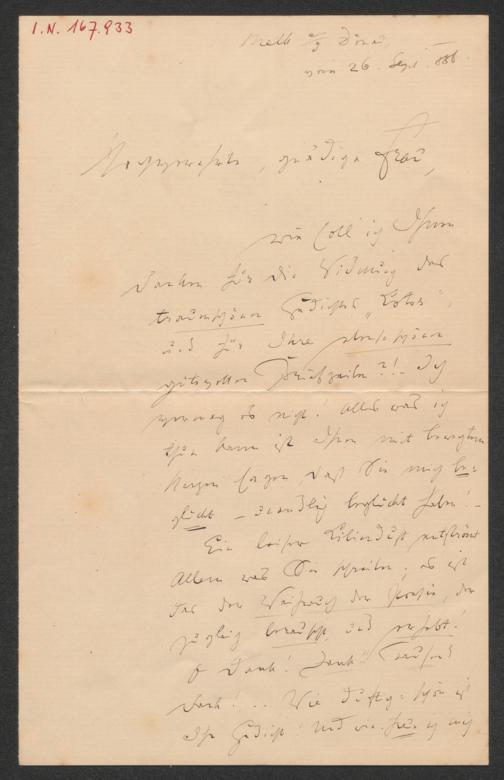 I.N. 167.933
Melk a/d Donau,
vom 26. Sept. 886.
Hochverehrte, gnädige Frau,
wie soll ich Ihnen
danken für die Widmung des
traumschönen Gedichtes „Lotos",
und für Ihre
gütevollen Briefzeilen?! Ich
vermag es nicht! Alles was ich
thun kann ist Ihnen mit bewegtem
Herzen sagen, daß Sie mich be-
glückt – unendlich beglückt haben! –
Ein leiser Lilienduft entströmt
Allem was Sie schreiben; es ist
das der Weihrauch der Poesie, der
zugleich berauscht und erhebt!
O Dank! Dank! Tausend
Dank! .. Wie duftig-schön ist
Ihr Gedicht! Und wie freu ich mich